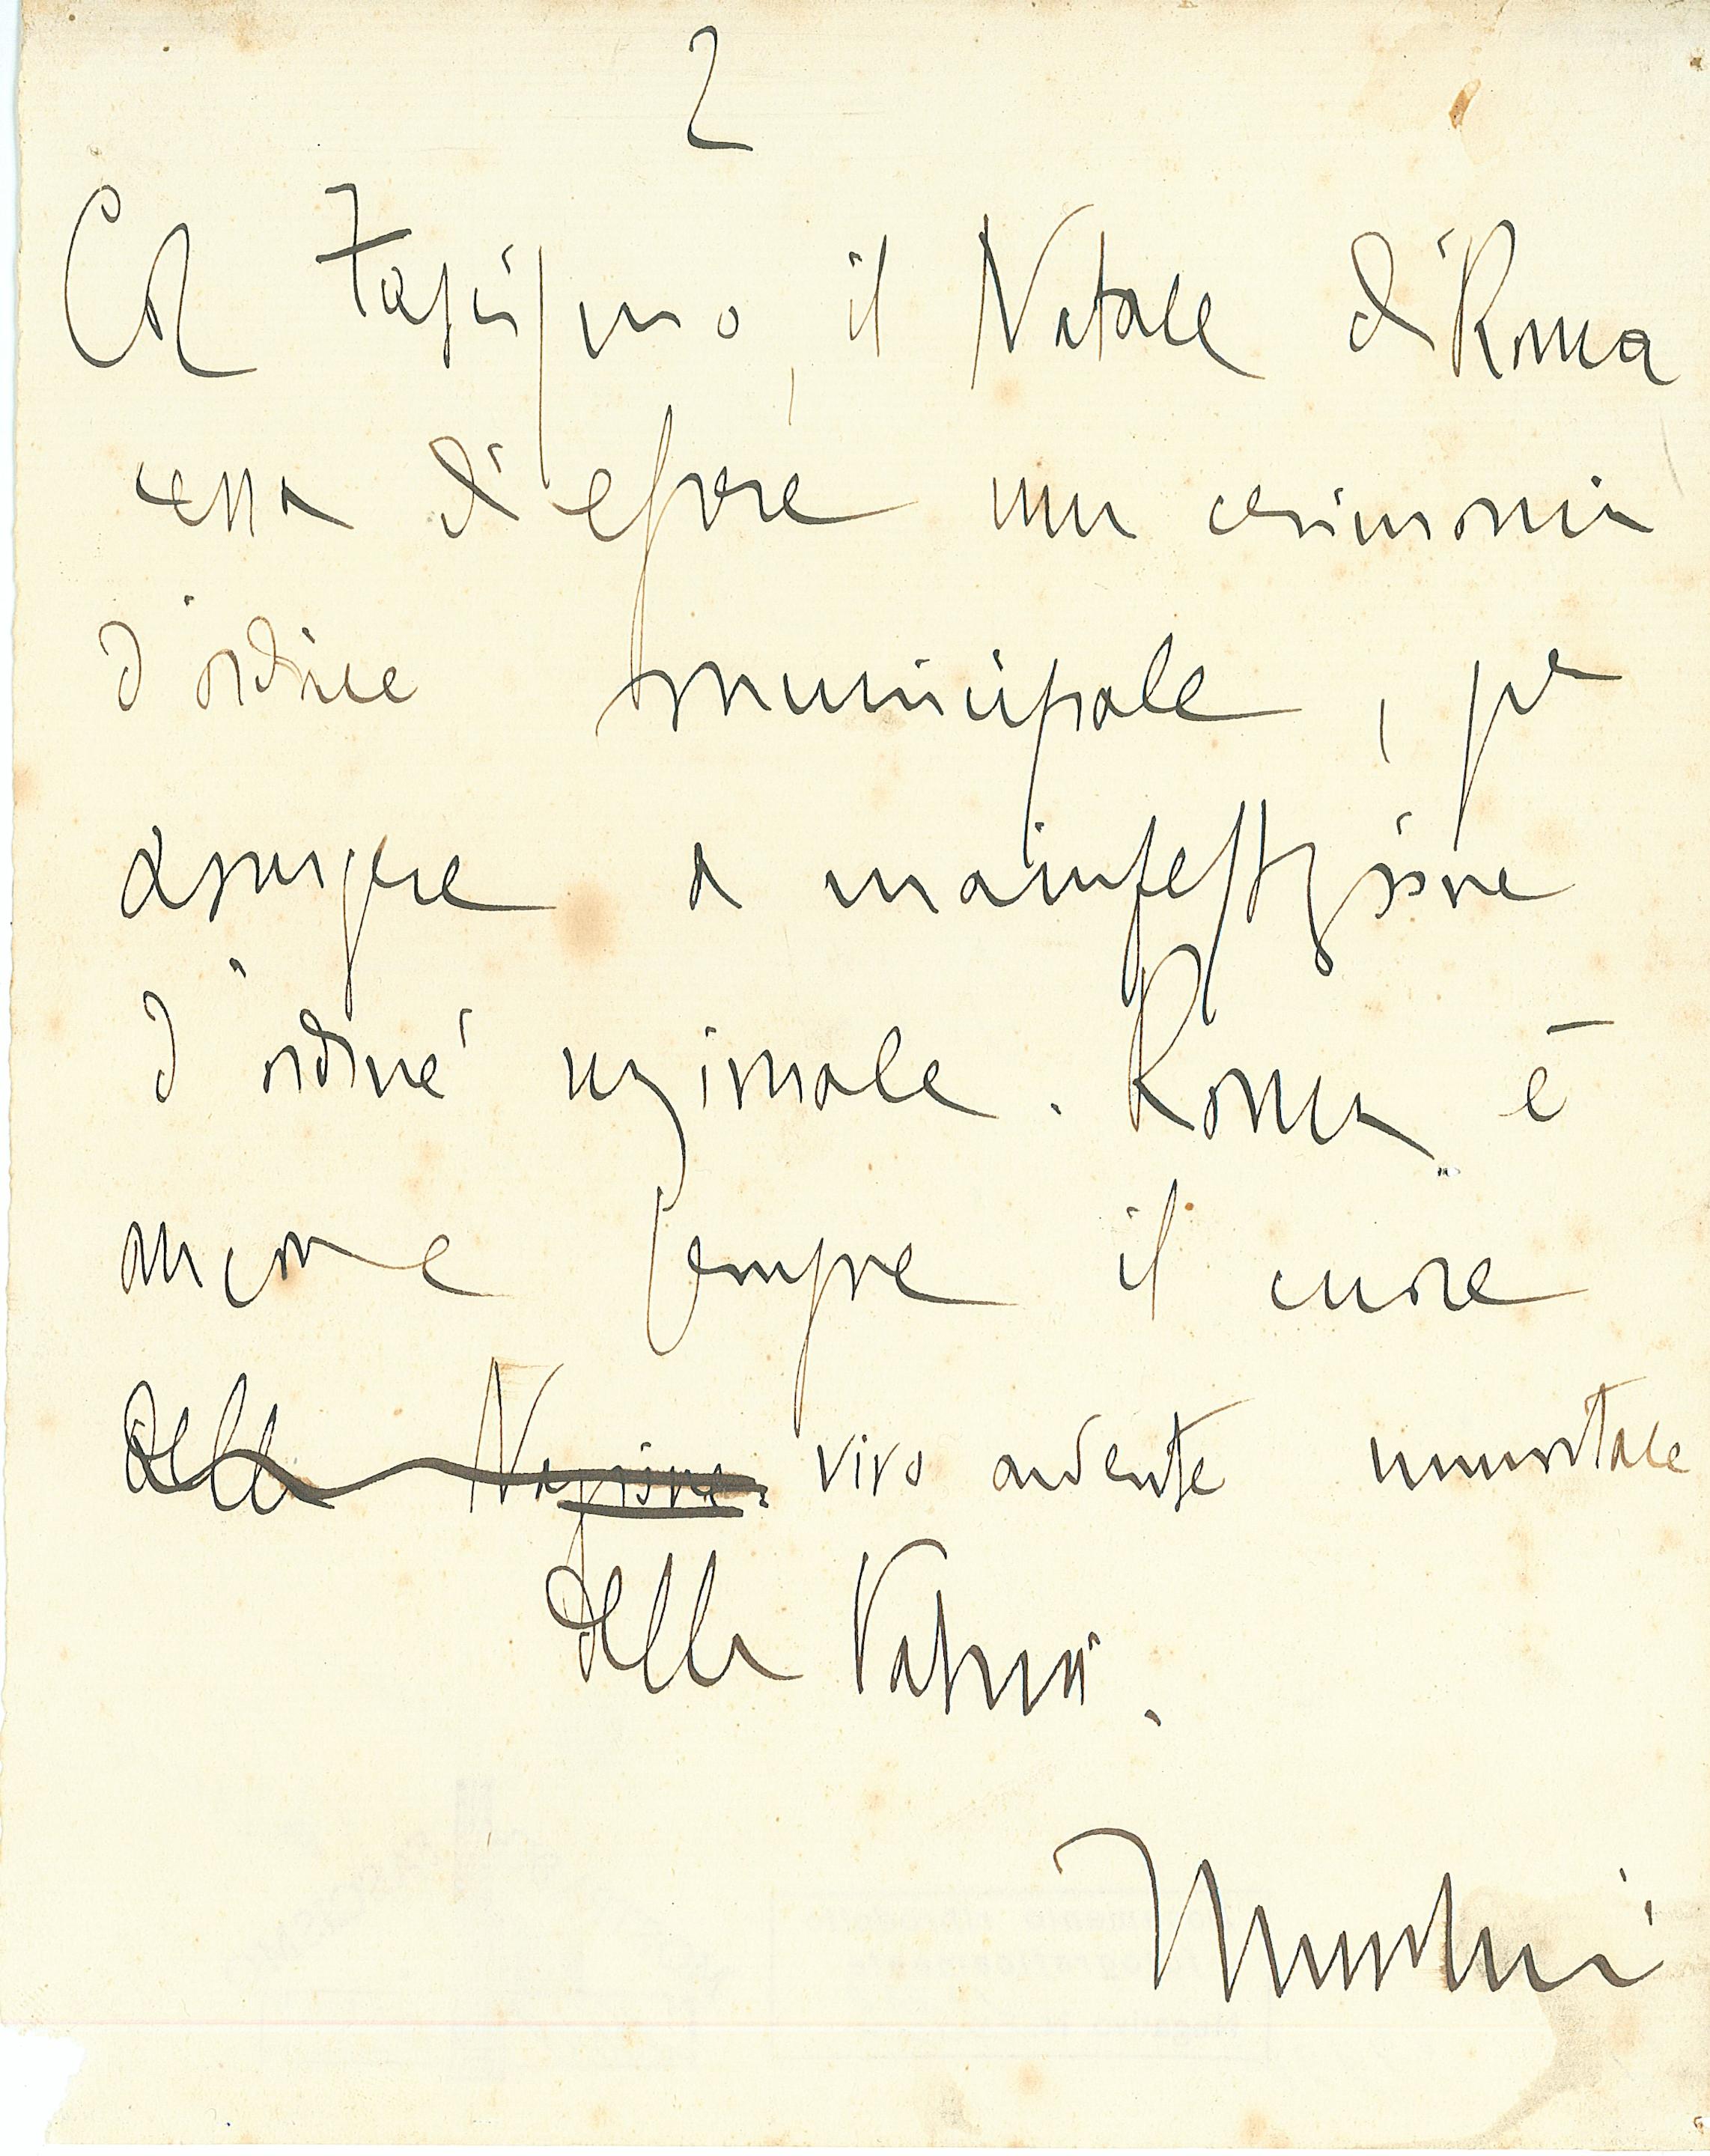 2
Col Fascismo, il Natale di Roma
cessa di essere una cerimonia
d'ordine municipale, per
assurgere a manifestazione
d'ordine nazionale. Roma è
ancora sempre il cuore
della Nazione. vivo ardente immortale
della Patria.
Mussolini